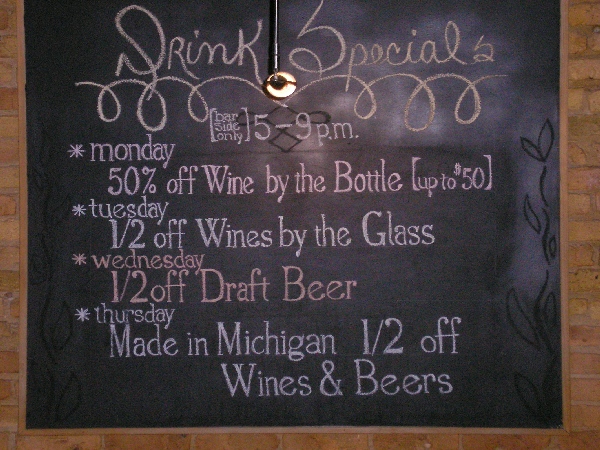 Drink Specials
[bar side only] 5-9 p.m.
* monday
50% off Wine by the Bottle [up to $50]
* tuesday
1/2 off Wines by the Glass
* wednesday
1/2 off Draft Beer
* thursday
Made in Michigan 1/2 off
Wines & Beers